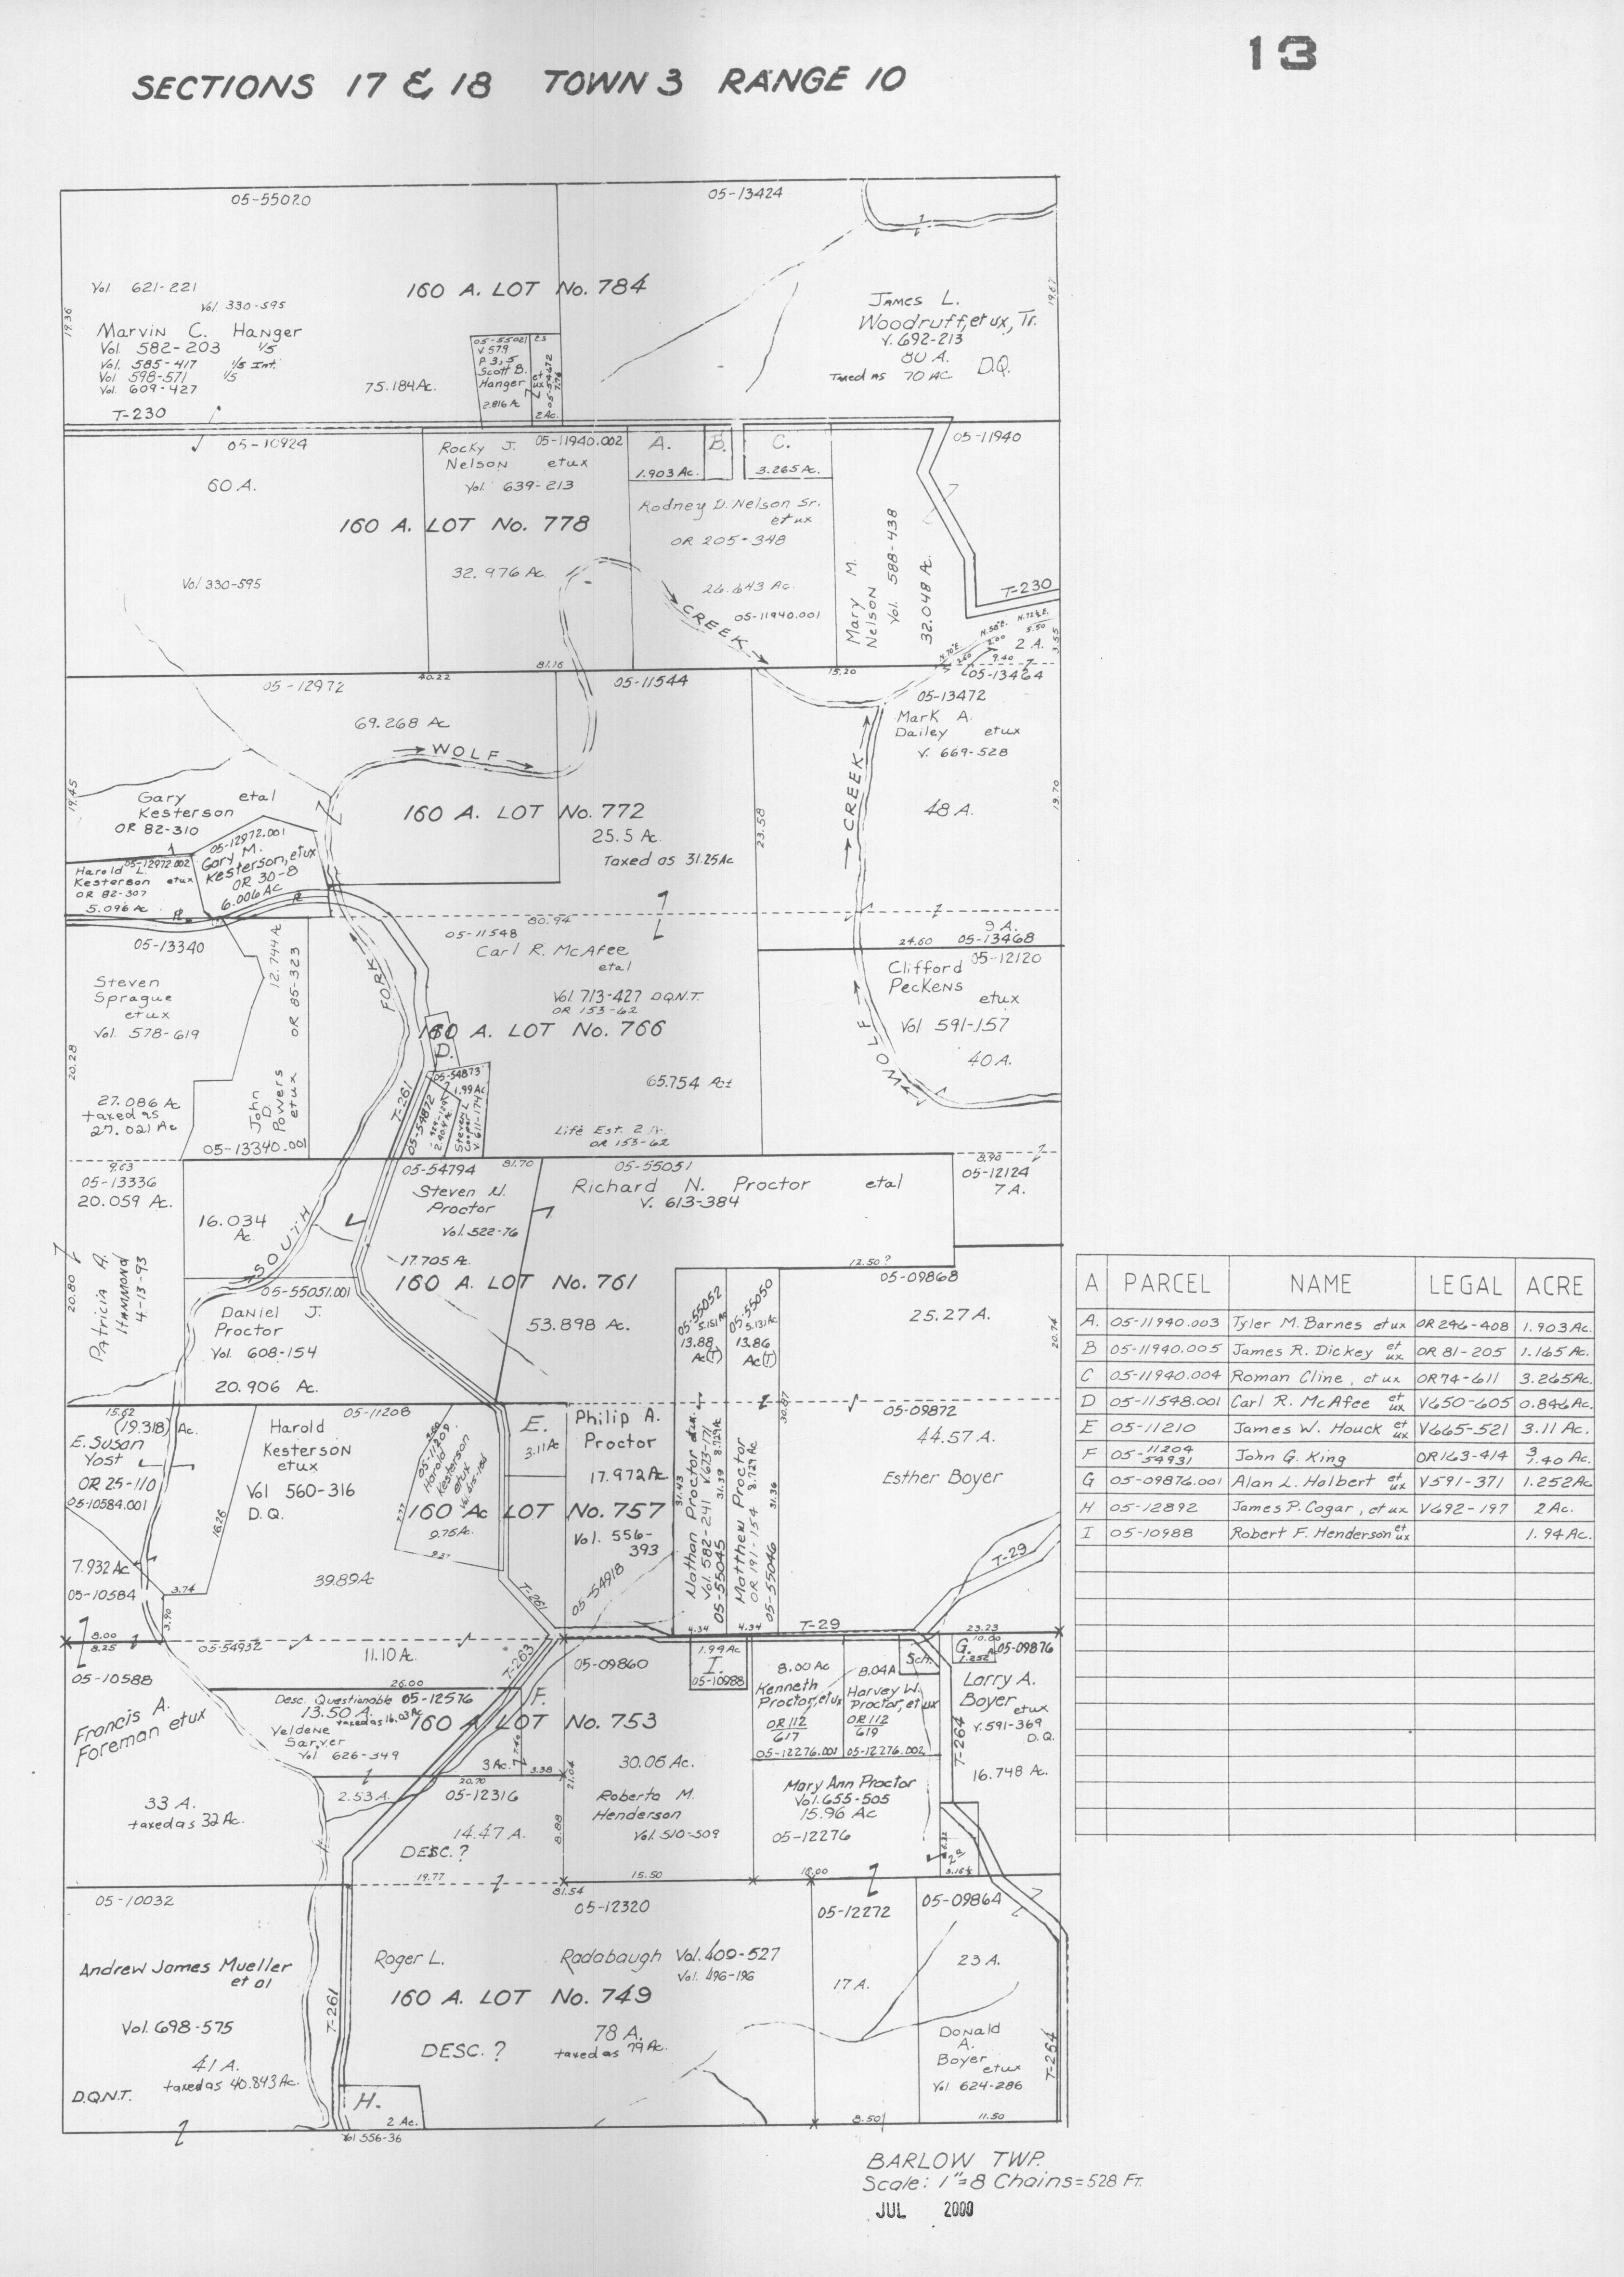 13
SECTIONS 17 & 18 TOWN 3 RANGE 10
05-55020
05-13424
Vol. 621-221
Vol. 330-595
160 A. LOT No. 784
19.36
19.67
Marvin C. Hanger
Vol. 582-203 1/5
Vol. 585-417 1/5 Int.
Vol 598-571 1/5
Vol. 609-427
75.184 Ac.
T-230
05-55021
V 579
P. 3, 5
Scott B.
Hanger
2.816 Ac
et ux
2 Ac.
James L.
Woodruff, et ux, Tr.
V. 692-213
80 A.
D.Q.
Taxed as 70 AC
05-10924
60 A.
Rocky J.
05-11940.002
Nelson etux
Vol. 639-213
A.
1.903 Ac.
B.
C.
3.265 Ac.
05-11940
160 A. LOT No. 778
Rodney D. Nelson Sr.
et ux
OR 205-348
Vol 330-595
32.976 Ac.
26.643 Ac.
05-11940.001
CREEK
Mary M.
Nelson
Vol. 588-438
32.048 A.
T-230
N.72½E.
5.50
N.58°E.
2 A.
3.55
9.40
05-13464
81.16
15.20
05-12972
40.22
05-11544
05-13472
69.268 Ac
Mark A.
Dailey etux
V. 669-528
WOLF
CREEK
19.45
19.70
Gary etal
Kesterson
OR 82-310
160 A. LOT No. 772
25.5 Ac.
Taxed as 31.25 Ac
23.58
48 A.
05-12972.001
Gary M.
Kesterson, etux
OR 30-8
6.006 AC
05-12972.002
Harold L.
Kesterson etux
OR 82-307
5.096 Ac
80.94
9 A.
24.60
05-13468
05-13340
12.744 A
OR 85-323
05-11548
Carl R. McAfee
etal
05-12120
Clifford
Peckens
etux
Vol 591-157
40 A.
Steven
Sprague
etux
Vol. 578-619
FORK
Vol. 713-427 D.Q.N.T.
OR 153-62
160 A. LOT No. 766
D.
WOLF
20.28
John
D
Powers
etux
27.086 Ac
taxed as
27.021 Ac
05-13340.001
T-261
05-54873
1.99 Ac
05-54872
Steven L.
Cooper
V 611-174
65.754 Ac±
Life Est. 2 A.
OR 153-62
9.63
05-13336
20.059 Ac.
05-54794
81.70
05-55051
8.90
05-12124
7 A.
Steven N.
Proctor
Vol. 522-76
Richard N. Proctor etal
V. 613-384
16.034
Ac.
SOUTH
17.705 Ac.
12.50?
05-09868
20.80
Patricia A.
Hammond
4-13-93
05-55051.001
160 A. LOT No. 761
Daniel J.
Proctor
Vol. 608-154
20.906 Ac.
53.898 A.
05-55052
5.151 Ac
13.88
Ac(T)
05-55050
5.131 Ac.
13.86
Ac(T)
25.27 A.
20.74
15.62
(19.318) Ac.
E. Susan
Yost
OR 25-110
05-10584.001
05-11208
Harold
Kesterson
etux
Vol 560-316
D.Q.
16.26
05-11209
Harold
Kesterson
etux
7.77
9.75 Ac.
E.
3.11 Ac
Philip A.
Proctor
17.972 Ac
30.87
05-09872
44.57 A.
Esther Boyer
160 Ac LOT No. 757
Vol. 556-
393
31.43
Nathan Proctor
Vol. 582-241 V673-171
05-55045
31.39 8.729 Ac
Matthew Proctor
OR 191-154 8.729 Ac
05-55046
31.36
7.932 Ac
05-10584
3.74
39.89 Ac
T-261
05-54918
T-29
3.90
8.00
8.25
4.34
4.34
T-29
23.23
05-54932
11.10 Ac.
T-263
05-10588
05-09860
1.99 Ac
I.
05-10988
8.00 Ac
Kenneth
Proctor, etux
OR 112
617
05-12276.001
8.04 A
Harvey W.
Proctor, et ux
OR 112
619
05-12276.002
Sch.
10.00
G.
1.252
05-09876
26.00
Francis A.
Foreman etux
Desc. Questionable 05-12576
13.50 A.
taxed as 16.03 Ac
Veldene
Sarver
Vol 626-349
F.
160 A. LOT No. 753
Larry A.
Boyer
etux
V. 591-369
D.Q.
T-264
16.748 Ac.
3 Ac.
3.38
30.06 Ac.
20.70
21.04
33 A.
taxed as 32 Ac.
2.53 A.
05-12316
14.47 A.
DESC. ?
8.88
Roberta M.
Henderson
Vol. 510-509
Mary Ann Proctor
Vol. 655-505
15.96 Ac
05-12276
2 a
19.77
81.54
15.50
16.00
05-10032
05-12320
05-12272
05-09864
Andrew James Mueller
et al
Roger L. Radabaugh Vol. 409-527
Vol. 496-196
160 A. LOT No. 749
17 A.
23 A.
Vol. 698-575
T-261
DESC. ?
78 A.
taxed as 79 Ac.
41 A.
taxed as 40.843 Ac.
D.Q.N.T.
H.
2 Ac.
Vol 556-36
Donald
A.
Boyer
etux
Vol. 624-286
T-264
8.50
11.50
A PARCEL NAME LEGAL ACRE
A. 05-11940.003 Tyler M. Barnes etux OR 246-408 1.903 Ac.
B 05-11940.005 James R. Dickey et ux OR 81-205 1.165 Ac.
C 05-11940.004 Roman Cline, etux OR 74-611 3.265 Ac.
D 05-11548.001 Carl R. McAfee et ux V650-605 0.846 Ac.
E 05-11210 James W. Houck et ux V665-521 3.11 Ac.
F 05-11204 54931 John G. King OR 163-414 3 7.40 Ac.
G 05-09876.001 Alan L. Halbert et ux V591-371 1.252 Ac
H 05-12892 James P. Cogar, etux V692-197 2 Ac.
I 05-10988 Robert F. Henderson et ux 1.94 Ac.
BARLOW TWP.
Scale: 1"=8 Chains=528 Ft.
JUL 2000